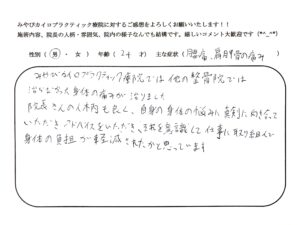 みやびカイロプラクティック療院に対するご感想をよろしくお願いいたします！！
施術内容、院長の人柄・雰囲気、院内の様子なんでも結構です。嬉しいコメント大歓迎です（*^_^*）
性別（ 男 ・ 女 ） 年齢（ 24 才） 主な症状（ 腰痛、肩甲骨の痛み ）
みやびカイロプラクティック療院では他の整骨院では
治らなかった身体の痛みが治りました
院長さんの人柄も良く、自身の身体の悩みに真剣に向き合って
いただき、アドバイスをいただき、それを意識して仕事に取り組んで
身体の負担が軽減されたかと思っています